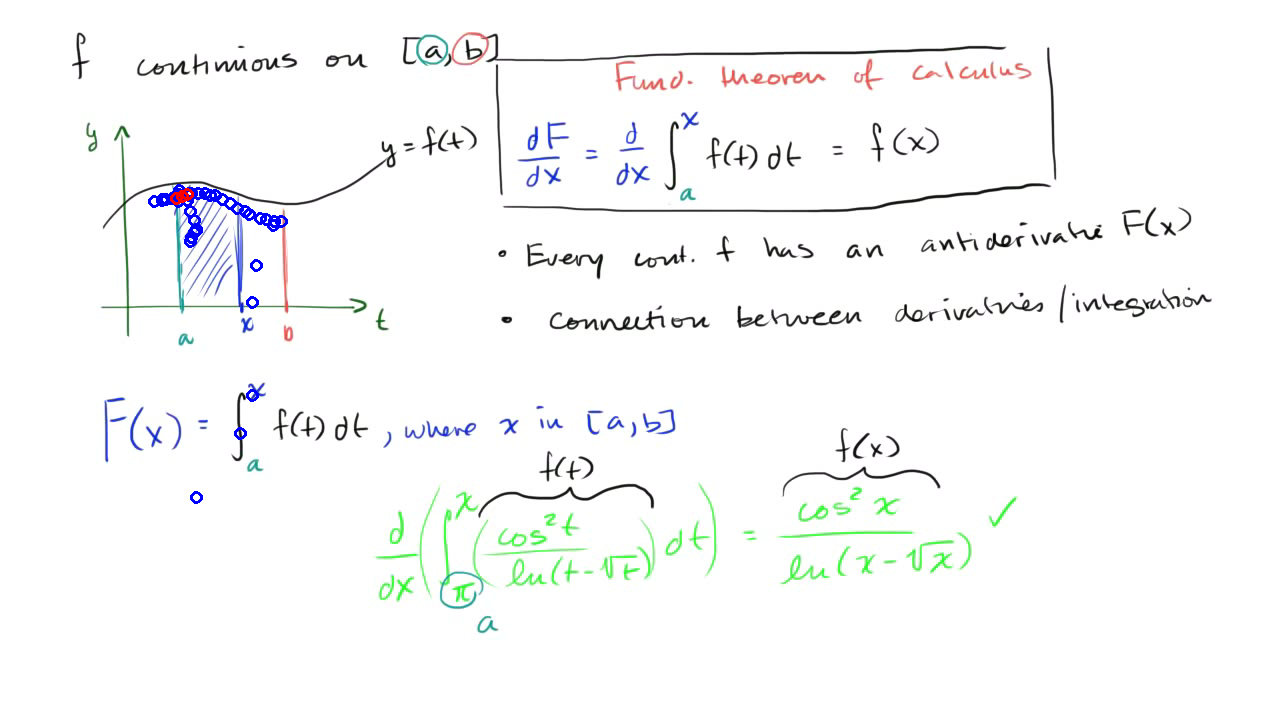 f continuous on [a, b]
Fund. theorem of calculus
dF/dx = d/dx ∫_a^x f(t) dt = f(x)
y
y = f(t)
a x b t
• Every cont. f has an antiderivative F(x)
• connection between derivatives/integration
F(x) = ∫_a^x f(t) dt, where x in [a, b]
f(t) f(x)
d/dx (∫_π^x (cos²t / ln(t-√t)) dt) = cos²x / ln(x-√x) ✓
a